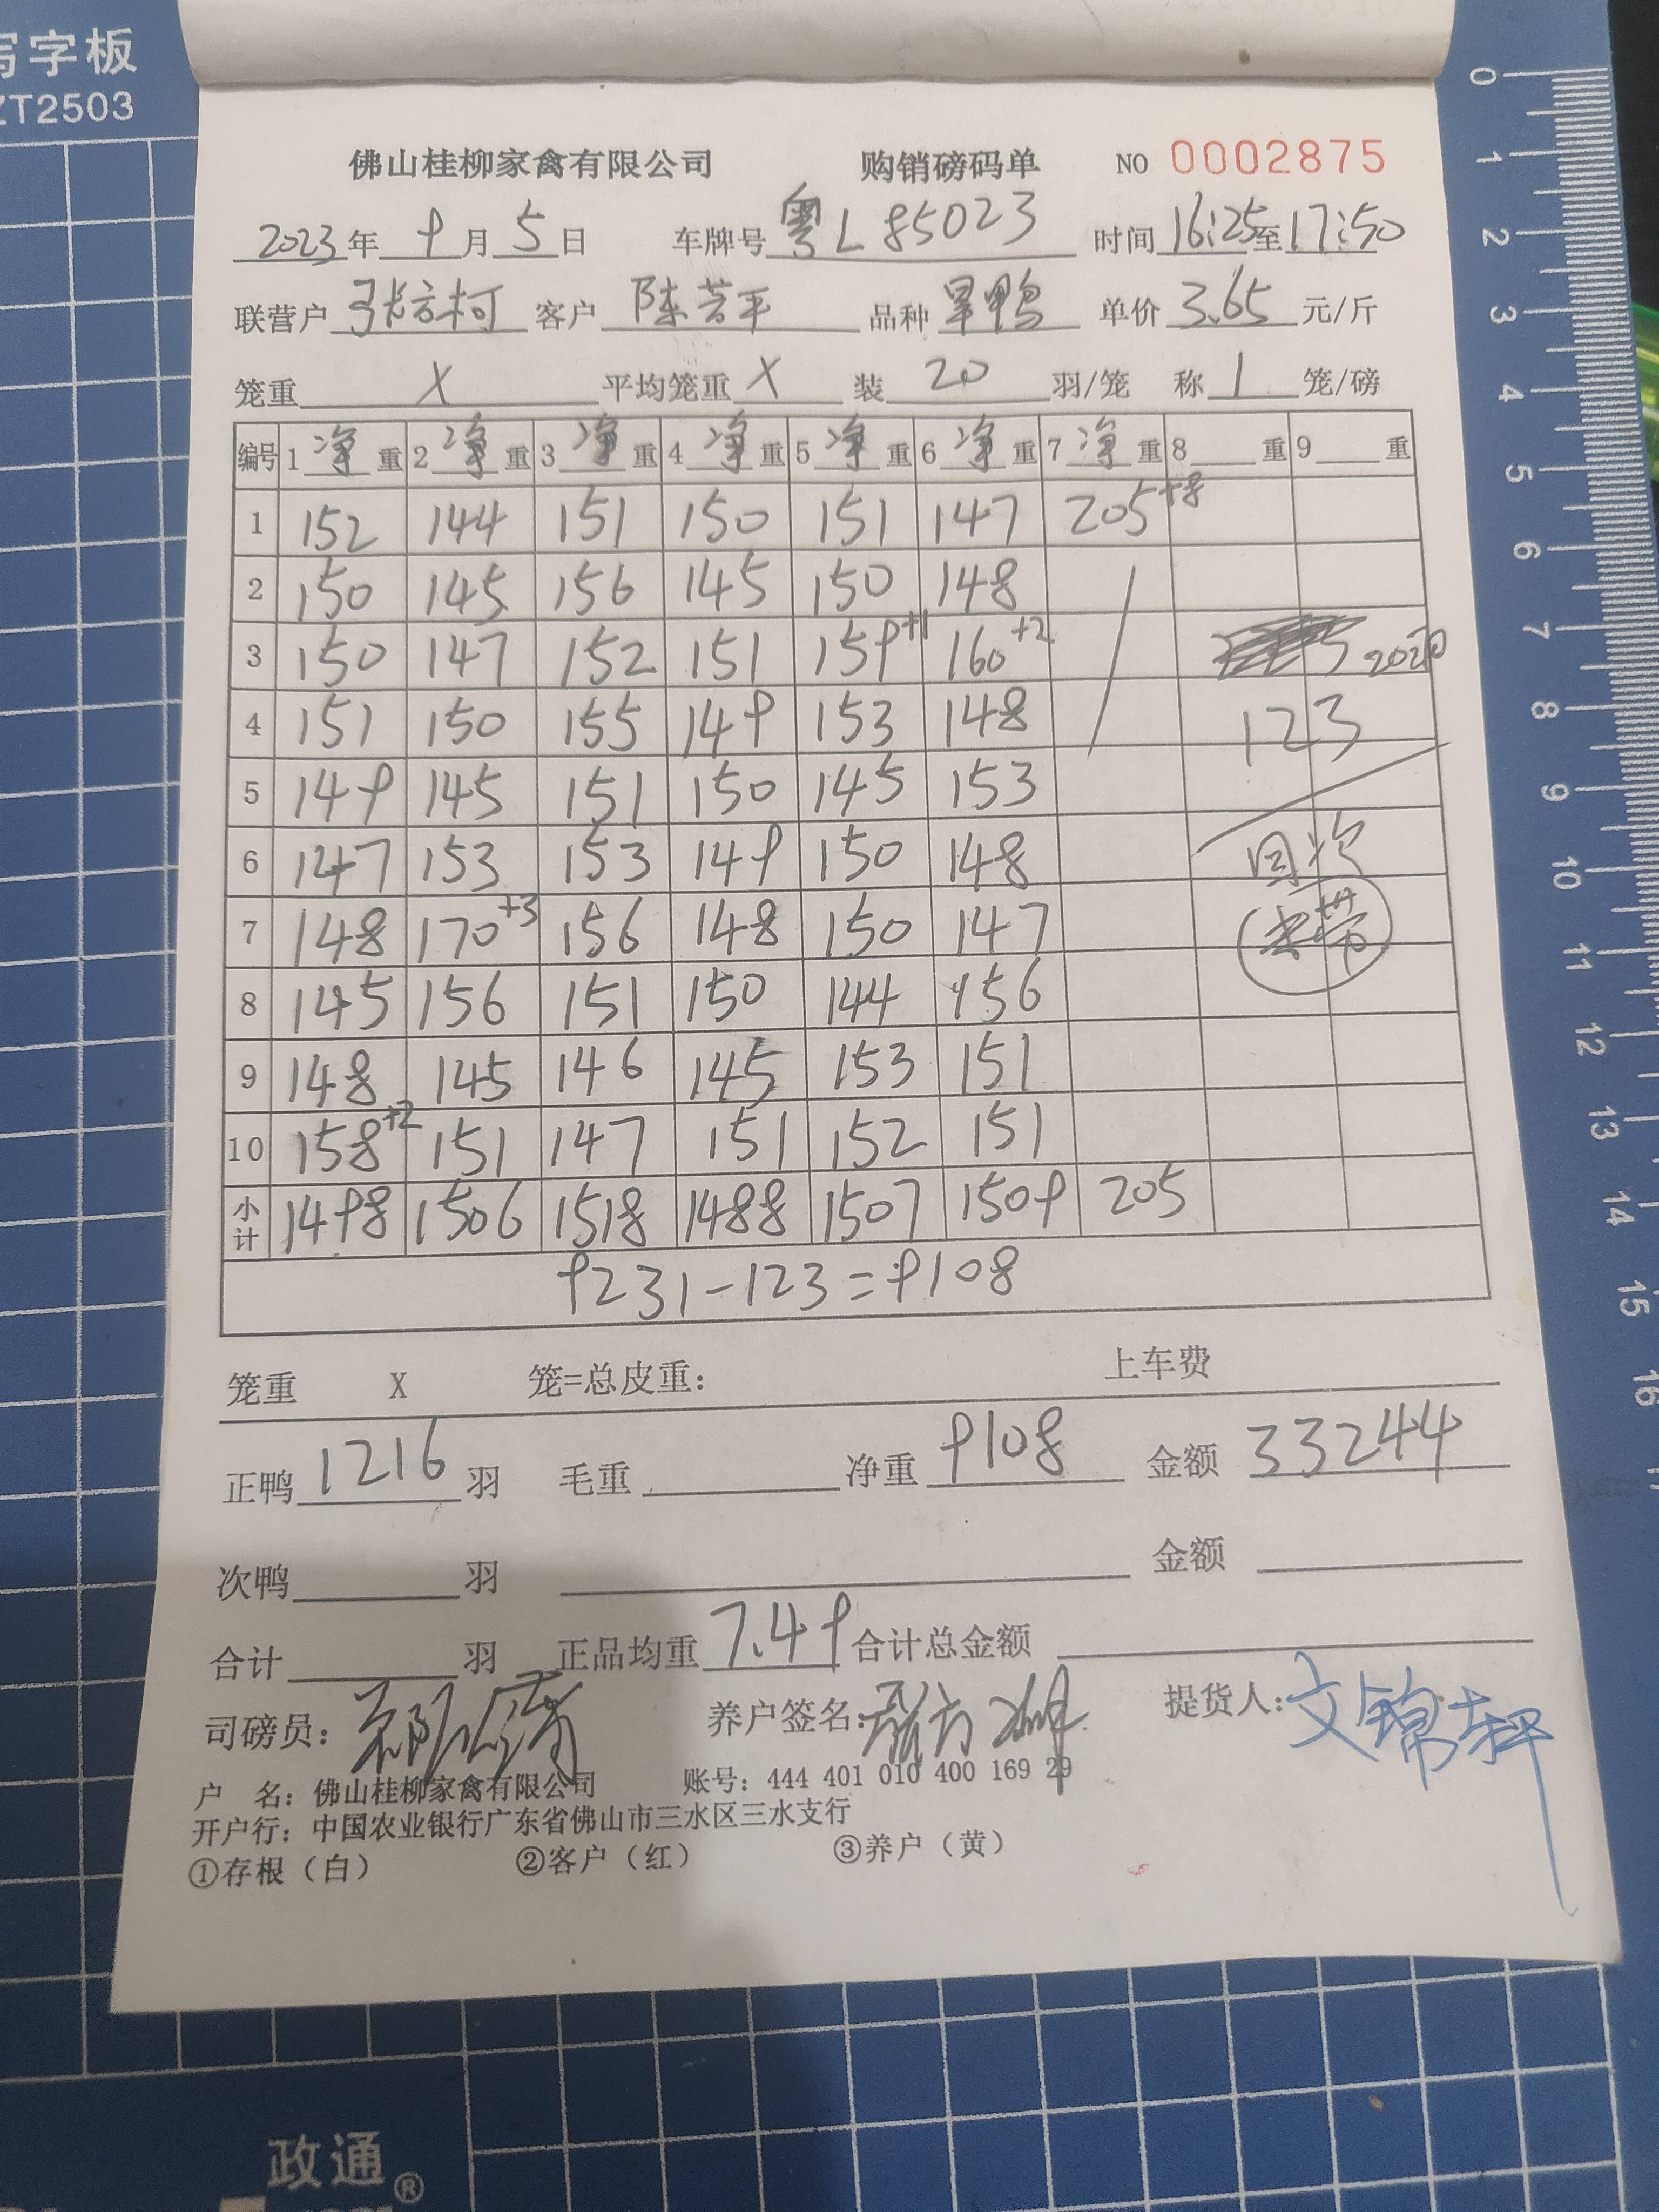 写字板
ZT2503
佛山桂柳家禽有限公司 购销磅码单 NO 0002875
2023年 9月5日 车牌号 粤L85023 时间16:25至17:50
联营户 张方柯 客户 陈芳平 品种 旱鸭 单价 3.65 元/斤
笼重 X 平均笼重 X 装 20 羽/笼 称 1 笼/磅
编号 1净重 2净重 3净重 4净重 5净重 6净重 7净重 8 重 9 重
1 152 144 151 150 151 147 205+8
2 150 145 156 145 150 148
3 150 147 152 151 159+1 160+2
4 151 150 155 149 153 148 123
5 149 145 151 150 145 153
6 147 153 153 149 150 148 回次
7 148 170+3 156 148 150 147
8 145 156 151 150 144 156
9 148 145 146 145 153 151
10 158+2 151 147 151 152 151
小计 1498 1506 1518 1488 1507 1509 205
9231-123=9108
笼重 X 笼=总皮重: 上车费
正鸭 1216 羽 毛重 净重 9108 金额 33244
次鸭 羽 金额
合计 羽 正品均重 7.49 合计总金额
司磅员: 养户签名: 提货人: 文锦轩
户 名: 佛山桂柳家禽有限公司 账号: 444 401 010 400 169 29
开户行: 中国农业银行广东省佛山市三水区三水支行
①存根(白) ②客户(红) ③养户(黄)
0
1
2
3
4
5
6
7
8
9
10
11
12
13
14
15
16
政通®